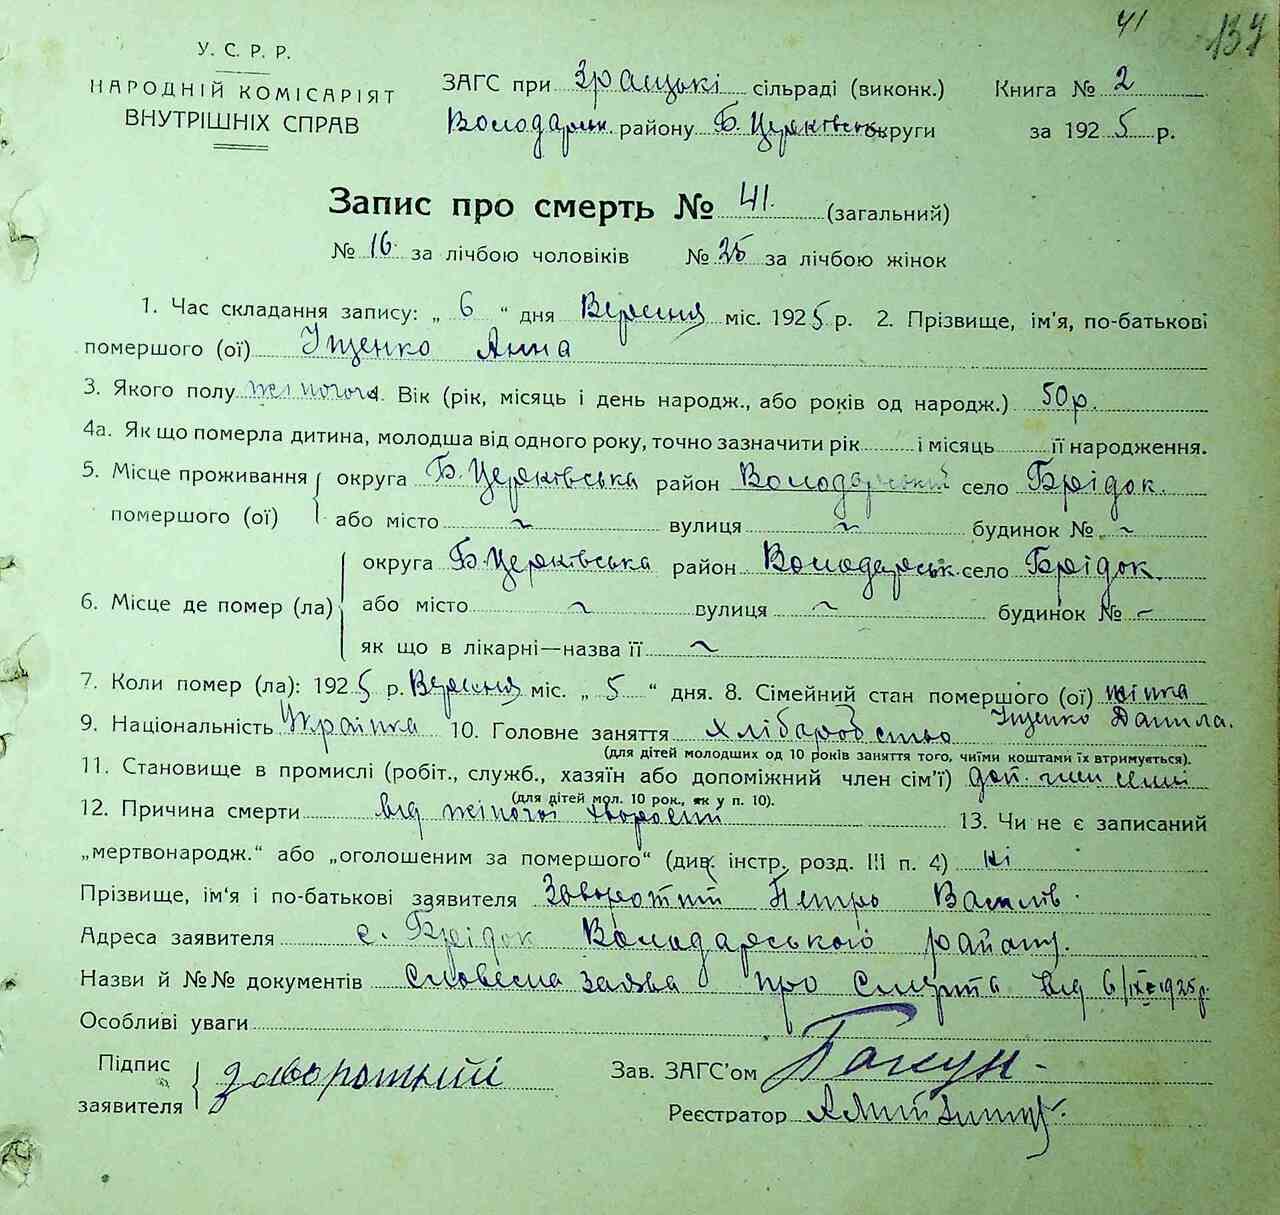 41 137
У. С. Р. Р.
НАРОДНІЙ КОМІСАРІЯТ
ВНУТРІШНІХ СПРАВ
ЗАГС при сільраді (виконк.) Книга № 2
Володарськ. району Б. Церківськ. округи за 1925 р.
Запис про смерть № 41. (загальний)
№ 16 за лічбою чоловіків № 25 за лічбою жінок
1. Час складання запису: „ 6 “ дня Вересня міс. 1925 р. 2. Прізвище, ім’я, по-батькові
помершого (ої) Іщенко Анна
3. Якого полу жіночого. Вік (рік, місяць і день народж., або років од народж.) 50 р.
4а. Як що померла дитина, молодша від одного року, точно зазначити рік і місяць її народження.
5. Місце проживання помершого (ої) округа Б. Церківська район Володарський село Брідок.
або місто ~ вулиця ~ будинок № ~
6. Місце де помер (ла) округа Б. Церківська район Володарськ. село Брідок.
або місто ~ вулиця ~ будинок № ~
як що в лікарні—назва її ~
7. Коли помер (ла): 1925 р. Вересня міс. „ 5 “ дня. 8. Сімейний стан помершого (ої) жінка
Іщенко Данила.
9. Національність Українка 10. Головне заняття хліборобство
(для дітей молодших од 10 років заняття того, чиїми коштами їх втримується).
11. Становище в промислі (робіт., служб., хазяїн або допоміжний член сім’ї) доп. член сімї
(для дітей мол. 10 рок., як у п. 10).
12. Причина смерти від жіночої хворости 13. Чи не є записаний
„мертвонародж.“ або „оголошеним за помершого“ (див. інстр. розд. III п. 4) ні
Прізвище, ім‘я і по-батькові заявителя Заворотній Петро Василів.
Адреса заявителя с. Брідок Володарського району.
Назви й №№ документів Словесна заява про смерть від 6/IX-1925 р.
Особливі уваги
Підпис заявителя Заворотний Зав. ЗАГС’ом
Реєстратор